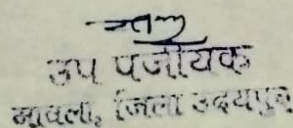 उप पंजीयक
मावली, जिला उदयपुर